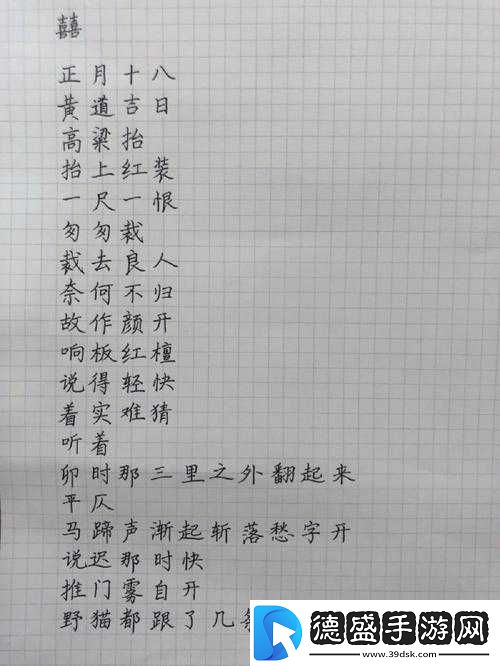 囍
正月十八
黄道吉日
高粱抬
抬上红装
一尺一恨
匆匆裁
裁去良人
奈何不归
故作颜开
响板红檀
说得轻快
着实难猜
听着
卯时那三里之外翻起来
平仄
马蹄声渐起斩落愁字开
说迟那时快
推门雾自开
野猫都跟了几
德盛手游网
www.39dsk.com